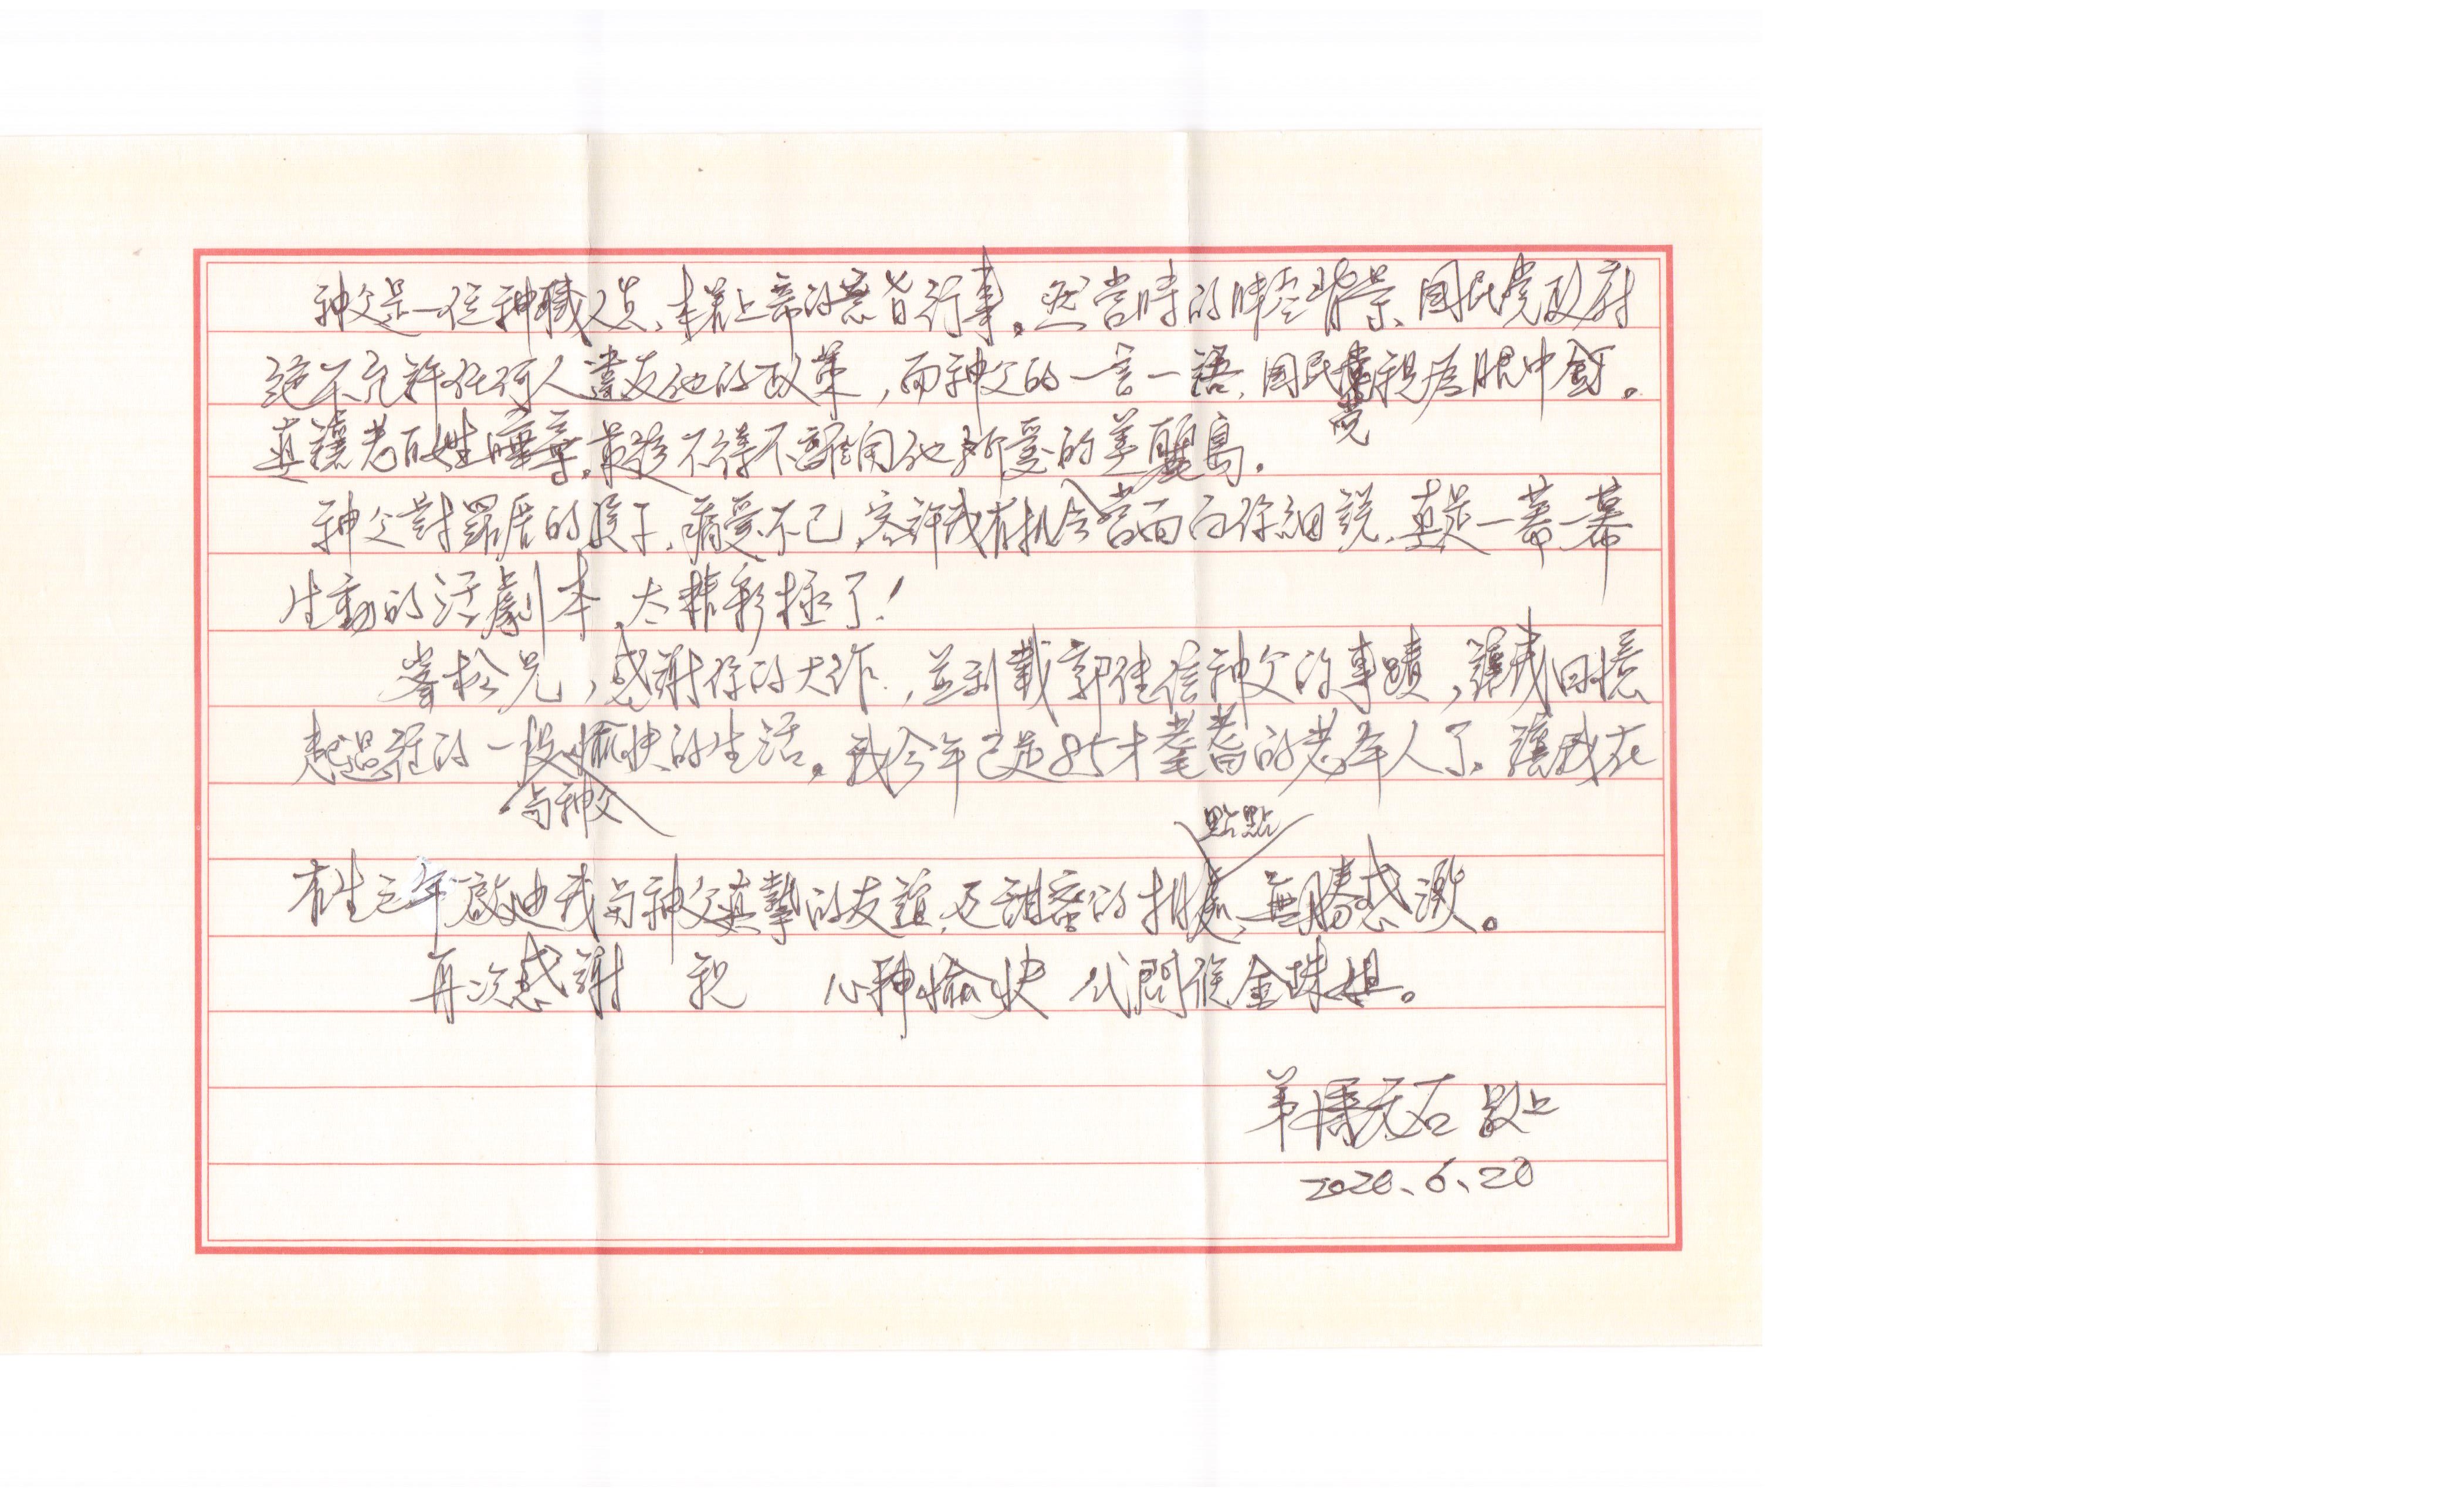 神父是一位神職人員、本着上帝的意旨行事。然當時的時空背景、國民党政府
絕不允許任何人違反他的政策，而神父的一言一語，國民党視為眼中釘。
真讓老百姓唾棄，最後不得不離開他所愛的美麗島。
神父對羅厝的孩子，疼愛不已，容許我有机会當面向你細說，真是一幕一幕
生動的活劇本，太精彩極了！
峯松兄，感謝你的大作，並刊載郭佳信神父的事蹟，讓我回憶
起過往的一段与神父愉快的生活。我今年已是85才耄耋的老年人了，讓我在
有生之年啟迪我与神父真摯的友誼，及甜蜜的相處點點，無勝感激。
再次感謝 祝 心神愉快 代問候金珠姐。
弟 天石 敬上
2020、6、20